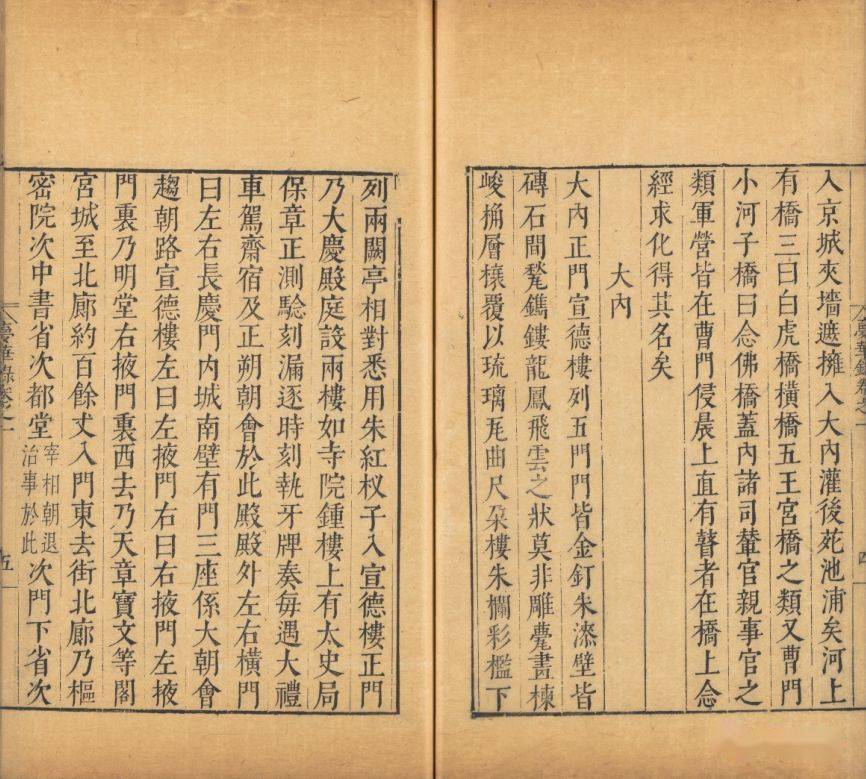 入京城夾墻遮擁入大內灌後苑池浦矣河上
有橋三曰白虎橋橫橋五王宮橋之類又曹門
小河子橋曰念佛橋蓋內諸司輦官親事官之
類軍營皆在曹門侵晨上直有瞽者在橋上念
經求化得其名矣
大內
大內正門宣德樓列五門門皆金釘朱漆壁皆
磚石間甃鐫鏤龍鳳飛雲之狀莫非雕甍畫棟
峻桷層榱覆以琉璃瓦曲尺朵樓朱欄彩檻下
夢華錄卷之一
四
列兩闕亭相對悉用朱紅杈子入宣德樓正門
乃大慶殿庭設兩樓如寺院鍾樓上有太史局
保章正測驗刻漏逐時刻執牙牌奏每遇大禮
車駕齋宿及正朔朝會於此殿殿外左右橫門
曰左右長慶門內城南壁有門三座係大朝會
趨朝路宣德樓左曰左掖門右曰右掖門左掖
門裏乃明堂右掖門裏西去乃天章寶文等閣
宮城至北廊約百餘丈入門東去街北廊乃樞
密院次中書省次都堂宰相朝退治事於此次門下省次
夢華錄卷之一
五